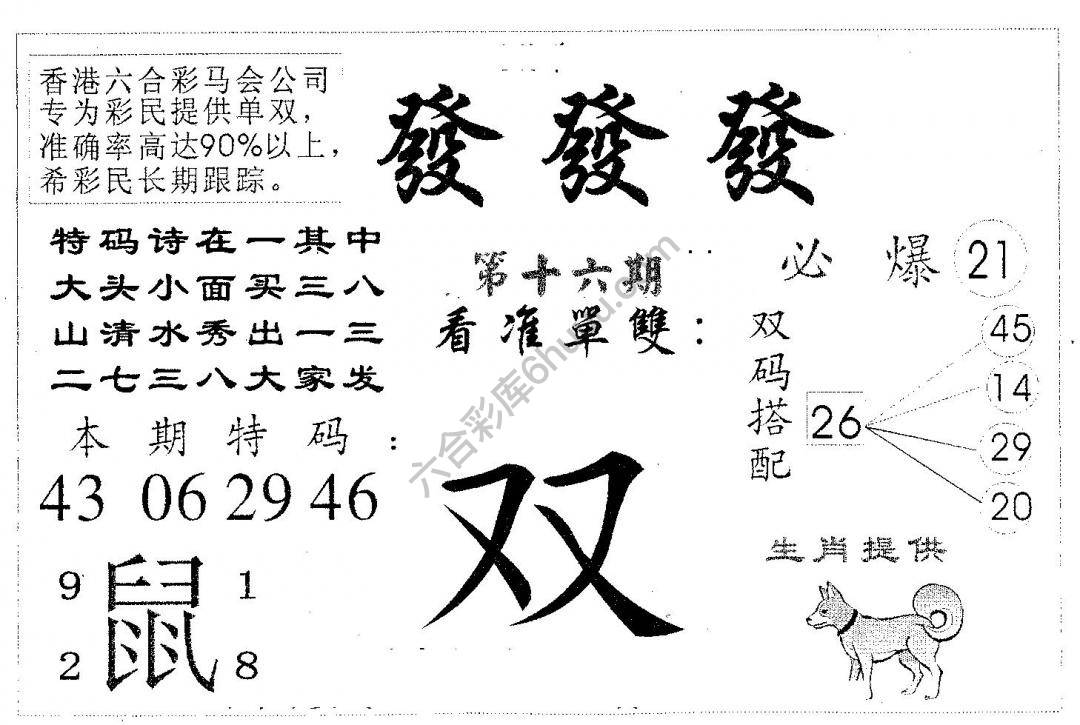 香港六合彩马会公司
专为彩民提供单双，
准确率高达90%以上，
希彩民长期跟踪。
發 發 發
特码诗在一其中
大头小面买三八
山清水秀出一三
二七三八大家发
第十六期
看准單雙：
必爆 21
双码搭配
26
45
14
29
20
本期特码：
43 06 29 46
双
生肖提供
9 鼠 1
2 8
六合彩库6huku.com